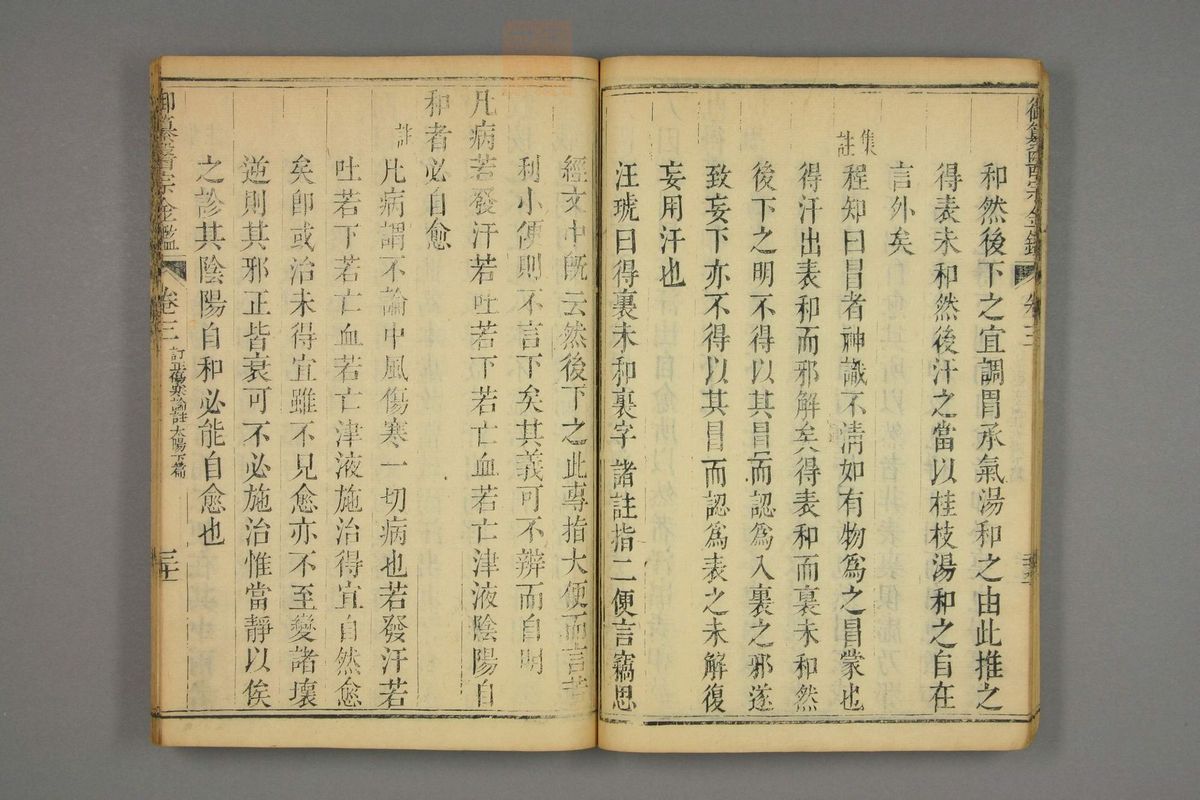 御纂醫宗金鑑
卷三
和然後下之宜調胃承氣湯和之由此推之
得表未和然後汗之當以桂枝湯和之自在
言外矣
集註
程知曰冒者神識不清如有物爲之冒蒙也
得汗出表和而邪解矣得表和而裏未和然
後下之明不得以其冒而認爲入裏之邪遂
致妄下亦不得以其冒而認爲表之未解復
妄用汗也
汪琥曰得裏未和裏字諸註指二便言竊思
經文中既云然後下之此專指大便而言若
利小便則不言下矣其義可不辨而自明
凡病若發汗若吐若下若亡血若亡津液陰陽自
和者必自愈
註
凡病謂不論中風傷寒一切病也若發汗若
吐若下若亡血若亡津液施治得宜自然愈
矣卽或治未得宜雖不見愈亦不至變諸壞
逆則其邪正皆衰可不必施治惟當靜以俟
之診其陰陽自和必能自愈也
御纂醫宗金鑑
卷三
訂正傷寒論註太陽下篇